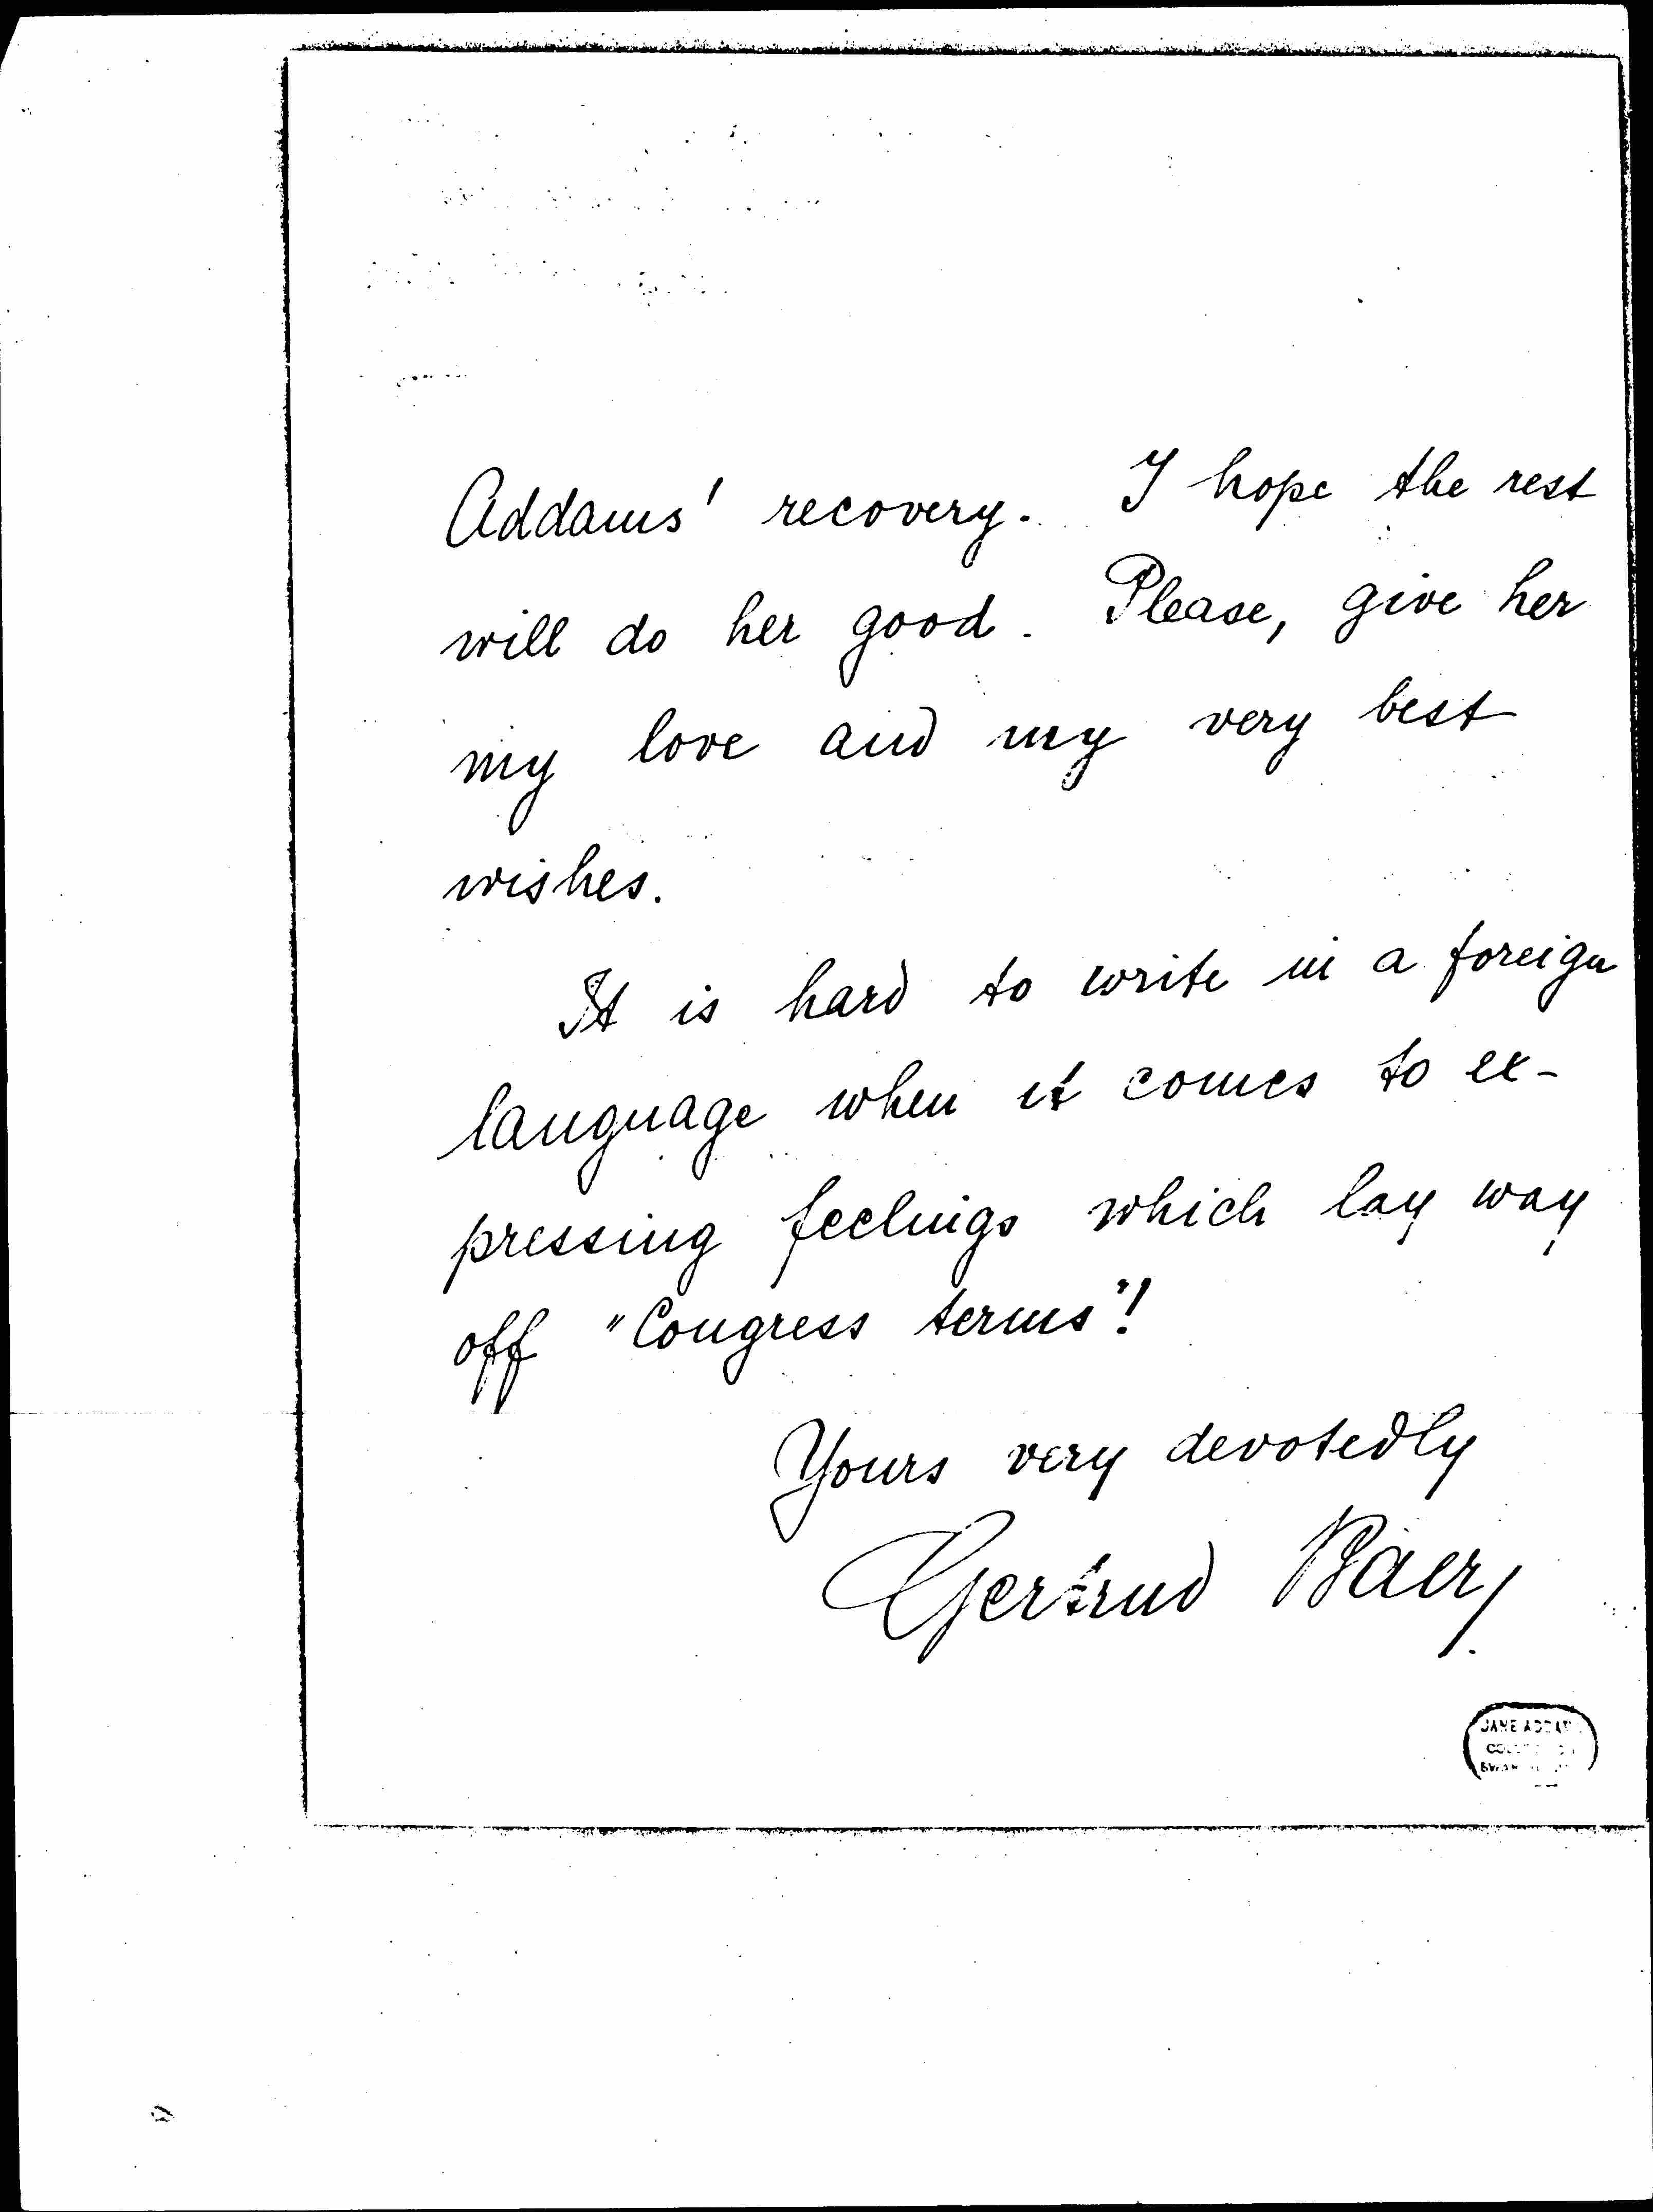 Addams' recovery. I hope the rest
will do her good. Please, give her
my love and my very best
wishes.
It is hard to write in a foreign
language when it comes to ex-
pressing feelings which lay way
off "Congress terms"!
Yours very devotedly
Gertrud Baer
JANE ADDAMS